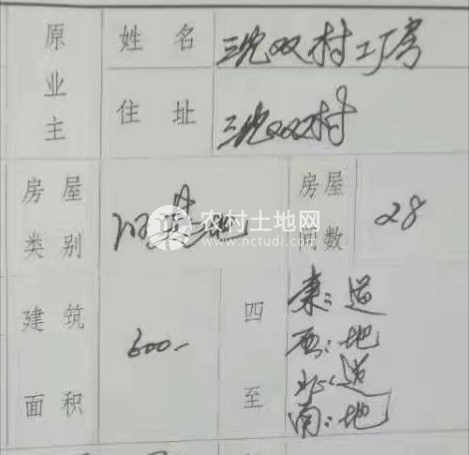 原业主
姓名
三兜双村工厂房
住址
三兜双村
房屋类别
房屋间数
28
农村土地网
www.nctudi.com
建筑面积
600-
四至
东:道
西:地
北:道
南:地